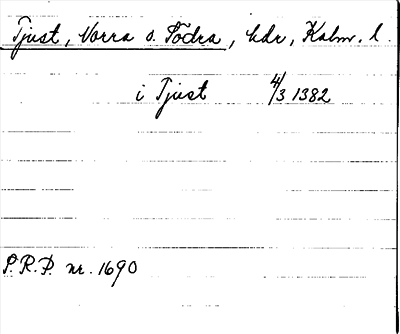 Tjust, Norra o. Södra, hdr, Kalm. l.
i Tjust 4/3 1382
P.R.P. nr. 1690